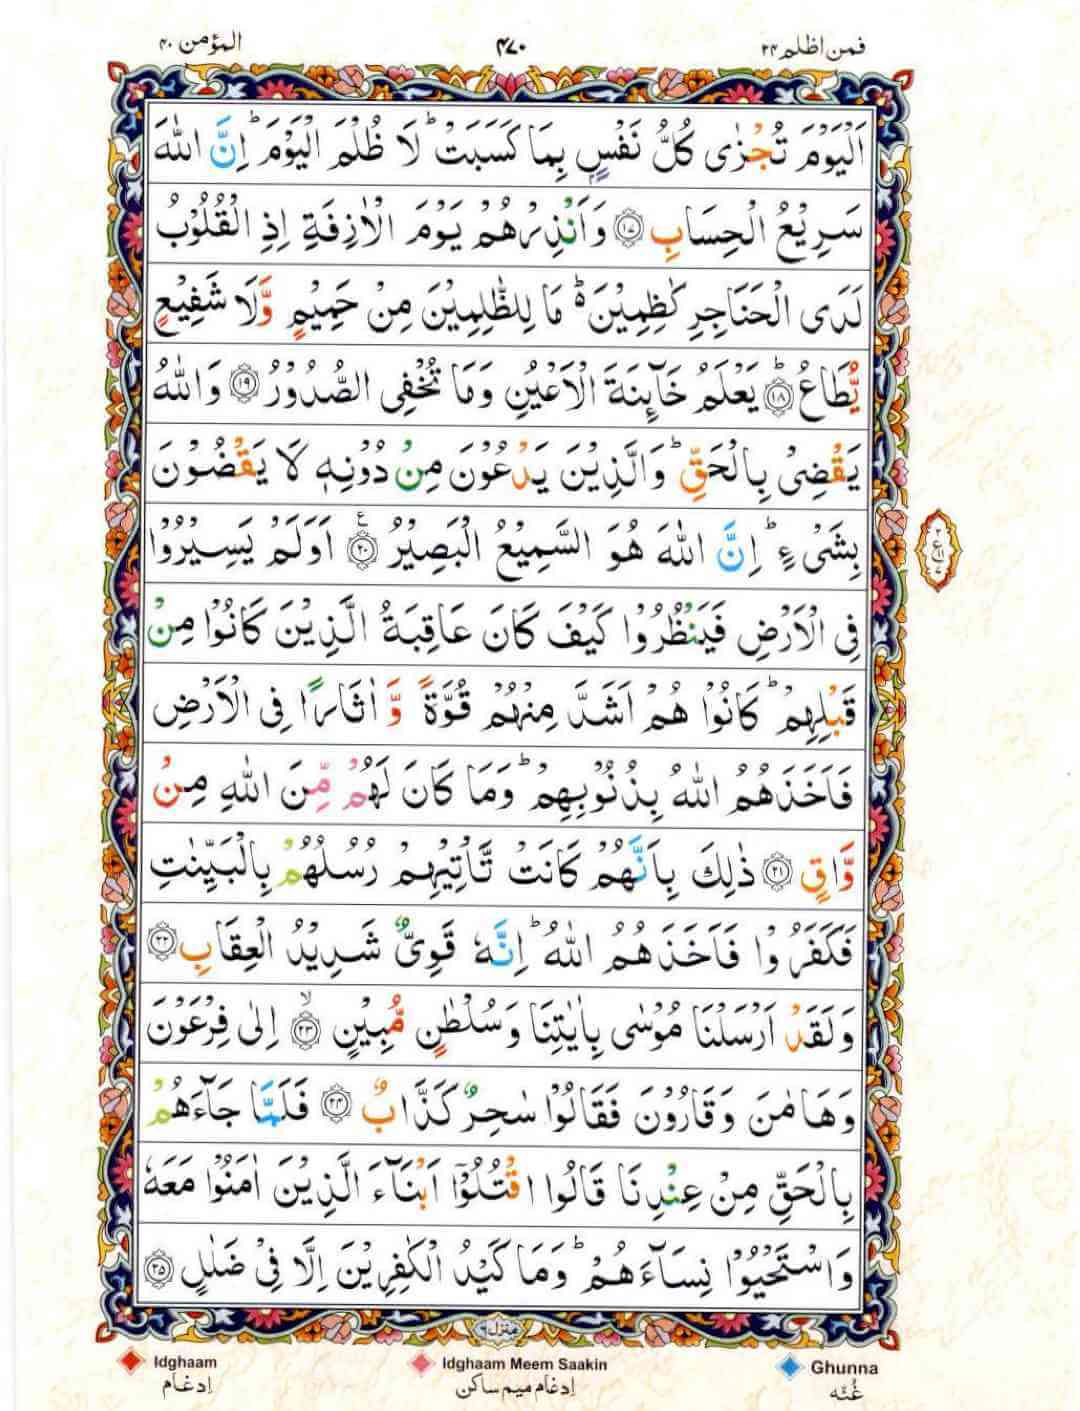 المؤمن ۴۰
۴۷۰
فمن اظلم ۲۴
اَلْيَوْمَ تُجْزٰى كُلُّ نَفْسٍۭ بِمَا كَسَبَتْ ؕ لَا ظُلْمَ الْيَوْمَ ؕ اِنَّ اللّٰهَ
سَرِيْعُ الْحِسَابِ ﴿۱۷﴾ وَاَنْذِرْهُمْ يَوْمَ الْاٰزِفَةِ اِذِ الْقُلُوْبُ
لَدَى الْحَنَاجِرِ كٰظِمِيْنَ ؕ۬ مَا لِلظّٰلِمِيْنَ مِنْ حَمِيْمٍ وَّلَا شَفِيْعٍ
يُّطَاعُ ؕ ﴿۱۸﴾ يَعْلَمُ خَآئِنَةَ الْاَعْيُنِ وَمَا تُخْفِى الصُّدُوْرُ ﴿۱۹﴾ وَاللّٰهُ
يَقْضِىْ بِالْحَقِّ ؕ وَالَّذِيْنَ يَدْعُوْنَ مِنْ دُوْنِهٖ لَا يَقْضُوْنَ
بِشَىْءٍ ؕ اِنَّ اللّٰهَ هُوَ السَّمِيْعُ الْبَصِيْرُ ﴿۲۰﴾ ع اَوَلَمْ يَسِيْرُوْا
فِى الْاَرْضِ فَيَنْظُرُوْا كَيْفَ كَانَ عَاقِبَةُ الَّذِيْنَ كَانُوْا مِنْ
قَبْلِهِمْ ؕ كَانُوْا هُمْ اَشَدَّ مِنْهُمْ قُوَّةً وَّاٰثَارًا فِى الْاَرْضِ
فَاَخَذَهُمُ اللّٰهُ بِذُنُوْبِهِمْ ؕ وَمَا كَانَ لَهُمْ مِّنَ اللّٰهِ مِنْ
وَّاقٍ ﴿۲۱﴾ ذٰلِكَ بِاَنَّهُمْ كَانَتْ تَّاْتِيْهِمْ رُسُلُهُمْ بِالْبَيِّنٰتِ
فَكَفَرُوْا فَاَخَذَهُمُ اللّٰهُ ؕ اِنَّهٗ قَوِىٌّ شَدِيْدُ الْعِقَابِ ﴿۲۲﴾
وَلَقَدْ اَرْسَلْنَا مُوْسٰى بِاٰيٰتِنَا وَسُلْطٰنٍ مُّبِيْنٍ ۙ ﴿۲۳﴾ اِلٰى فِرْعَوْنَ
وَهَامٰنَ وَقَارُوْنَ فَقَالُوْا سٰحِرٌ كَذَّابٌ ﴿۲۴﴾ فَلَمَّا جَآءَهُمْ
بِالْحَقِّ مِنْ عِنْدِنَا قَالُوا اقْتُلُوْۤا اَبْنَآءَ الَّذِيْنَ اٰمَنُوْا مَعَهٗ
وَاسْتَحْيُوْا نِسَآءَهُمْ ؕ وَمَا كَيْدُ الْكٰفِرِيْنَ اِلَّا فِىْ ضَلٰلٍ ﴿۲۵﴾
منزل ۶
Idghaam
ادغام
Idghaam Meem Saakin
ادغام میم ساکن
Ghunna
غُنّه